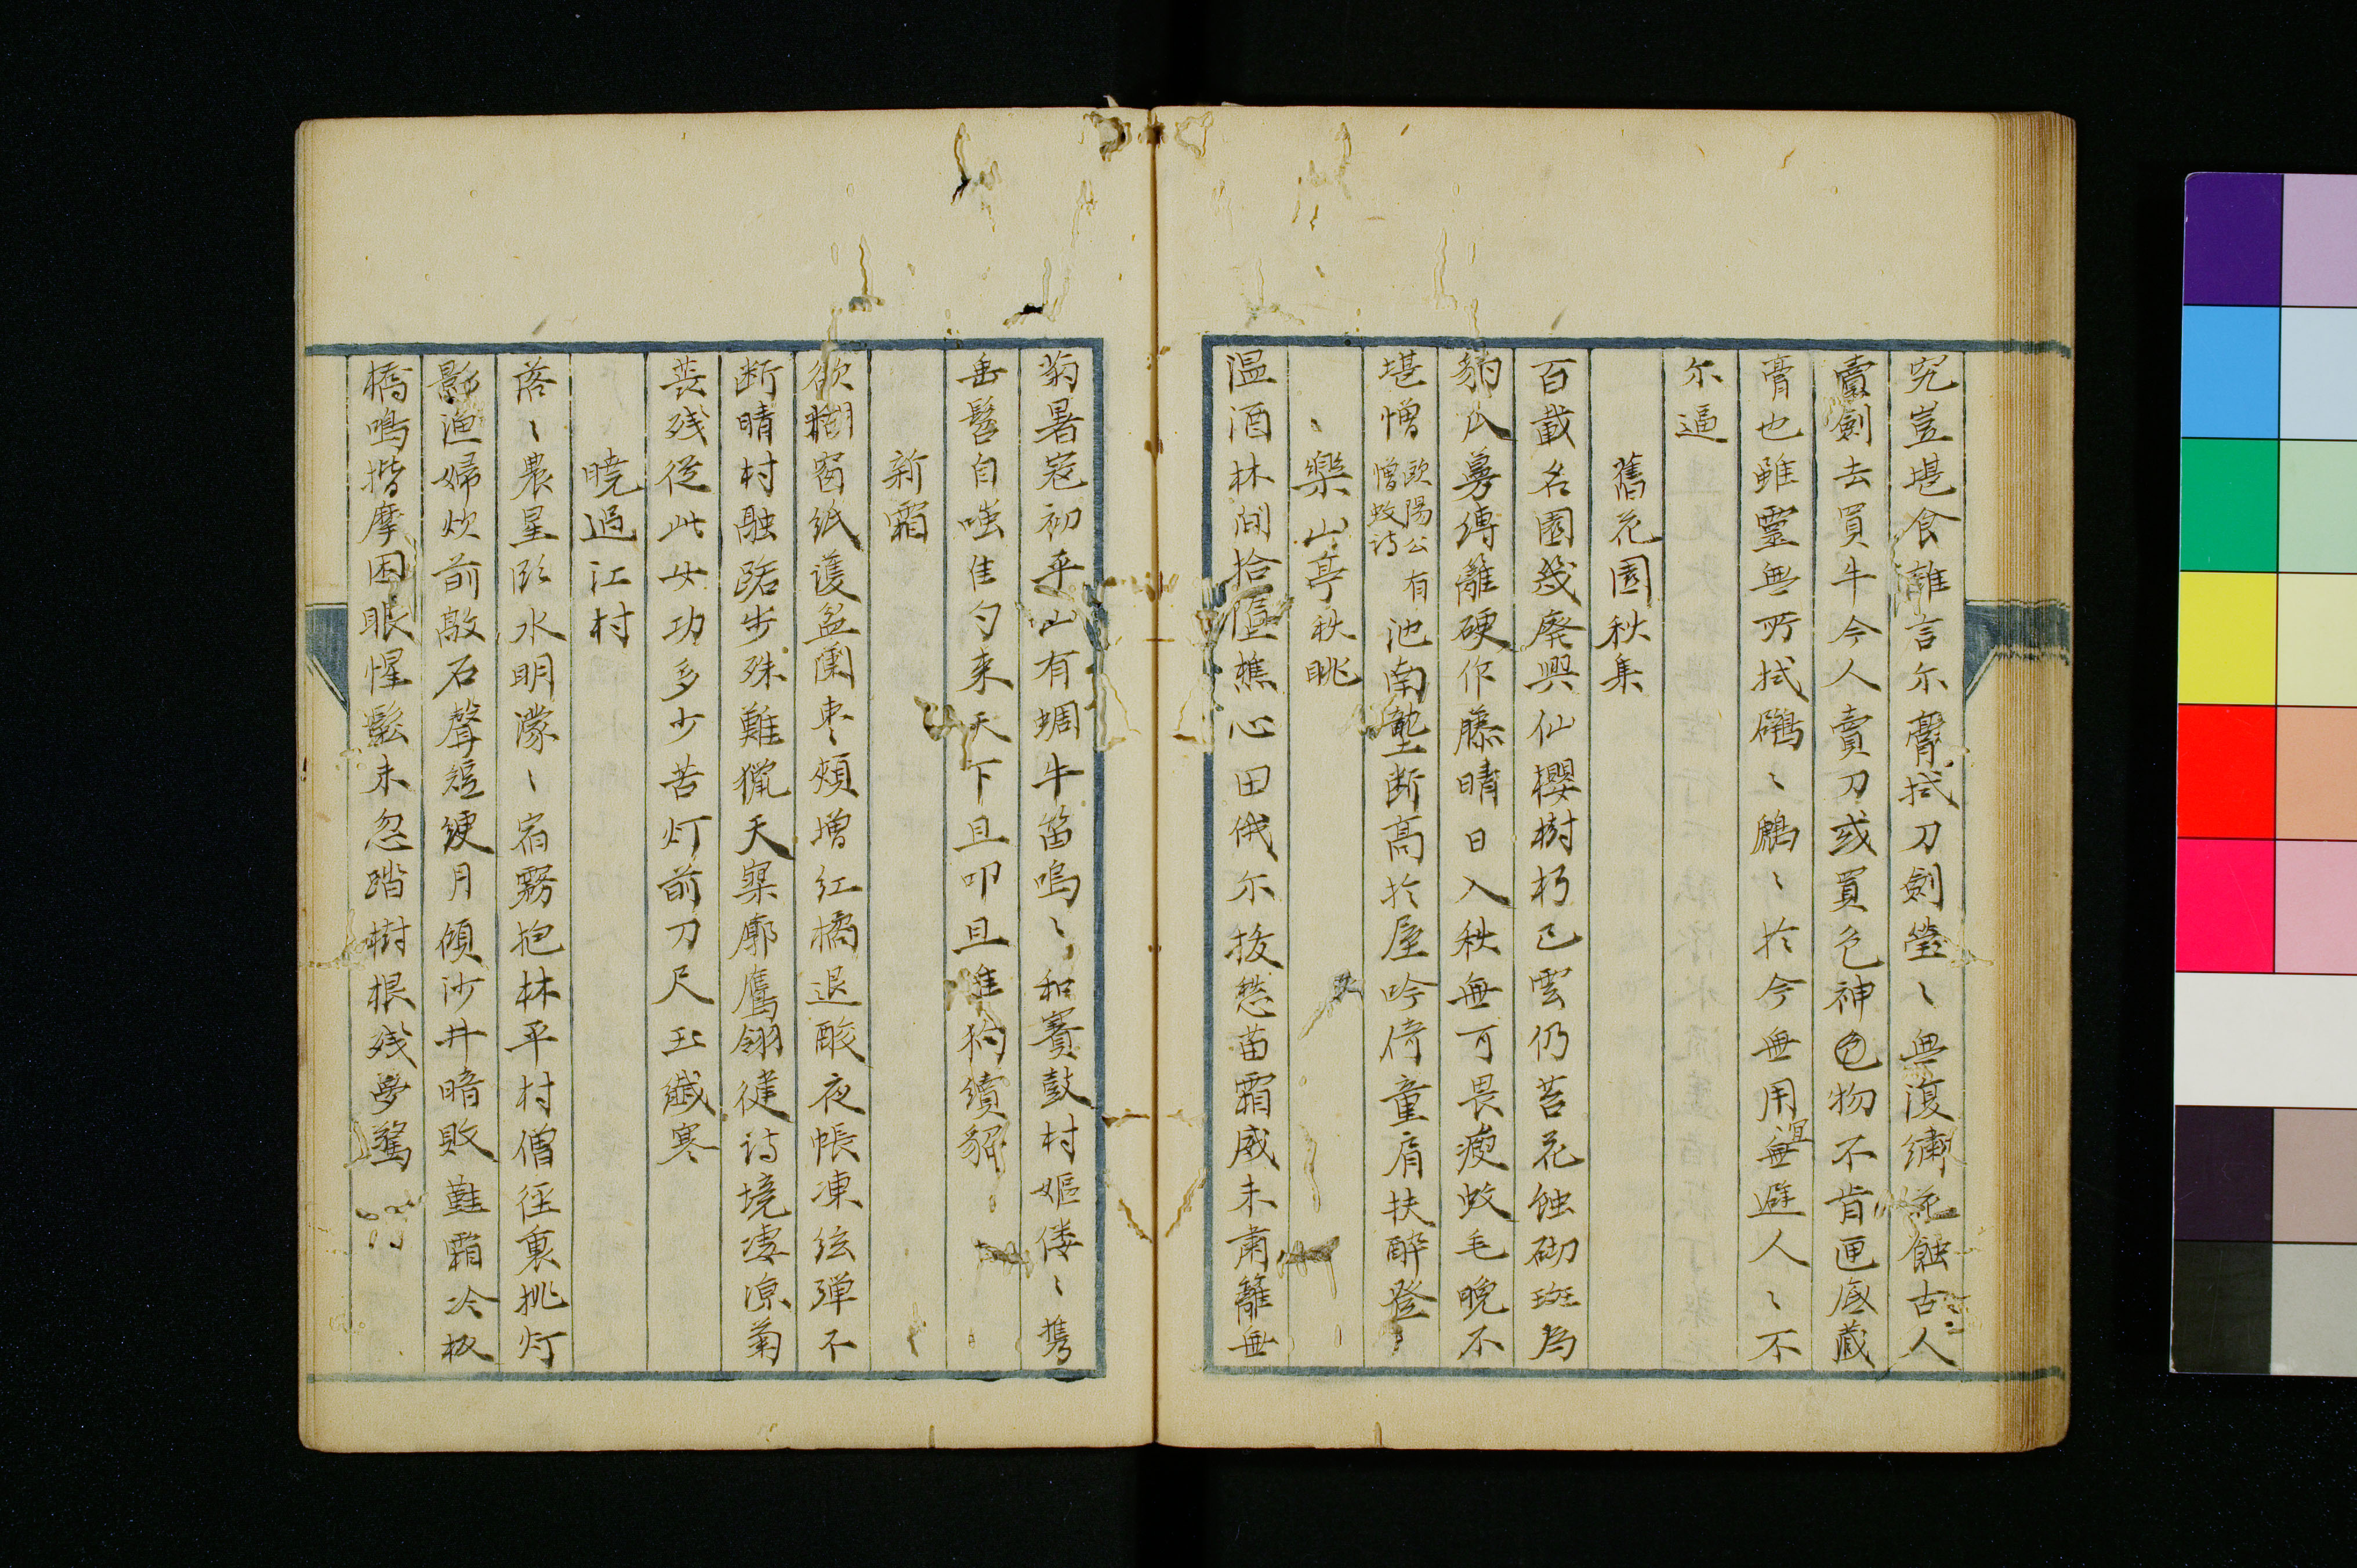 究豈堪食離言尓膏拭刀劍瑩〻無復繡花蝕古人
賣劍去買牛今人賣刀或買色神色物不肯匣底蔵
膏也雖靈無所拭鸊〻鵜〻於今無用無避人〻不
尓逼
舊花園秋集
百載名園幾廃興仙櫻樹朽已雲仍苔花蝕砌斑為
豹瓜蔓縛籬硬作藤晴日入秋無可畏瘦蚊毛晩不
堪憎歐陽公有憎蚊诗池南塾断高於屋吟倚童肩扶酔登
樂山亭秋眺
温酒林間拾墮樵心田俄尓抜愁苗霜威未肅籬無
菊暑寇初平山有蜩牛笛鳴〻和賽鼓村嫗僂〻携
垂髫自嗤佳句来天下且叩且唯狗續貂
新霜
欲糊窗紙護盆蘭枣頰増红橘退酸夜帳凍絃弾不
断晴村融路步殊難獵天寥廓鷹翎健诗境凄凉菊
蕊残従此女功多少苦灯前刀尺玉纖寒
暁過江村
落〻農星臥水明濛〻宿霧抱林平村僧径裏挑灯
影漁婦炊前敲石聲短綆月傾沙井暗敗鞋霜冷板
橋鳴揩摩困眼惺鬆未忽踏樹根残夢驚